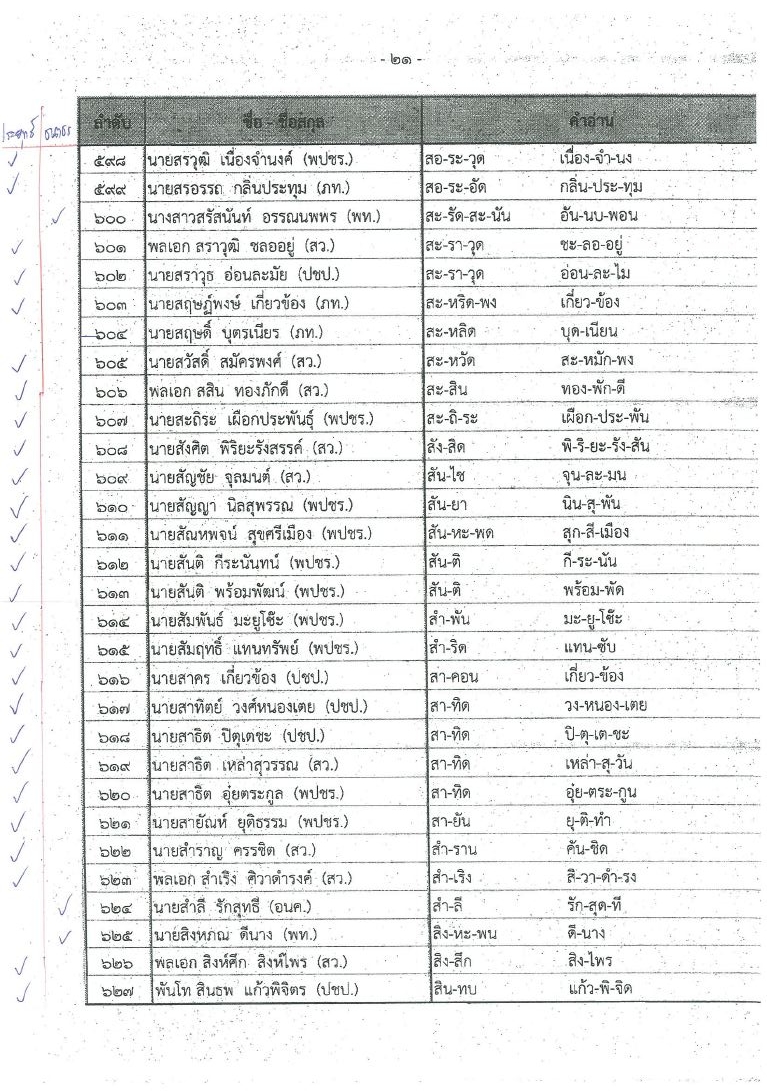 - ๒๑ -
ประยุทธ์ ธนาธร
ลำดับ ชื่อ - ชื่อสกุล คำอ่าน
๕๙๘ นายสรวุฒิ เนื่องจำนงค์ (พปชร.) สอ-ระ-วุด เนื่อง-จำ-นง
๕๙๙ นายสรอรรถ กลิ่นประทุม (ภท.) สอ-ระ-อัด กลิ่น-ประ-ทุม
๖๐๐ นางสาวสรัสนันท์ อรรณนพพร (พท.) สะ-รัด-สะ-นัน อัน-นบ-พอน
๖๐๑ พลเอก สราวุฒิ ชลออยู่ (สว.) สะ-รา-วุด ชะ-ลอ-อยู่
๖๐๒ นายสราวุธ อ่อนละมัย (ปชป.) สะ-รา-วุด อ่อน-ละ-ไม
๖๐๓ นายสฤษฏ์พงษ์ เกี่ยวข้อง (ภท.) สะ-หริด-พง เกี่ยว-ข้อง
๖๐๔ นายสฤษดิ์ บุตรเนียร (ภท.) สะ-หลิด บุด-เนียน
๖๐๕ นายสวัสดิ์ สมัครพงศ์ (สว.) สะ-หวัด สะ-หมัก-พง
๖๐๖ พลเอก สสิน ทองภักดี (สว.) สะ-สิน ทอง-พัก-ดี
๖๐๗ นายสะถิระ เผือกประพันธุ์ (พปชร.) สะ-ถิ-ระ เผือก-ประ-พัน
๖๐๘ นายสังศิต พิริยะรังสรรค์ (สว.) สัง-สิด พิ-ริ-ยะ-รัง-สัน
๖๐๙ นายสัญชัย จุลมนต์ (สว.) สัน-ไช จุน-ละ-มน
๖๑๐ นายสัญญา นิลสุพรรณ (พปชร.) สัน-ยา นิน-สุ-พัน
๖๑๑ นายสัณหพจน์ สุขศรีเมือง (พปชร.) สัน-หะ-พด สุก-สี-เมือง
๖๑๒ นายสันติ กีระนันทน์ (พปชร.) สัน-ติ กี-ระ-นัน
๖๑๓ นายสันติ พร้อมพัฒน์ (พปชร.) สัน-ติ พร้อม-พัด
๖๑๔ นายสัมพันธ์ มะยูโซ๊ะ (พปชร.) สำ-พัน มะ-ยู-โซ๊ะ
๖๑๕ นายสัมฤทธิ์ แทนทรัพย์ (พปชร.) สำ-ริด แทน-ซับ
๖๑๖ นายสาคร เกี่ยวข้อง (ปชป.) สา-คอน เกี่ยว-ข้อง
๖๑๗ นายสาทิตย์ วงศ์หนองเตย (ปชป.) สา-ทิด วง-หนอง-เตย
๖๑๘ นายสาธิต ปิตุเตชะ (ปชป.) สา-ทิด ปิ-ตุ-เต-ชะ
๖๑๙ นายสาธิต เหล่าสุวรรณ (สว.) สา-ทิด เหล่า-สุ-วัน
๖๒๐ นายสาธิต อุ๋ยตระกูล (พปชร.) สา-ทิด อุ๋ย-ตระ-กูน
๖๒๑ นายสายัณห์ ยุติธรรม (พปชร.) สา-ยัน ยุ-ติ-ทำ
๖๒๒ นายสำราญ ครรชิต (สว.) สำ-ราน คัน-ชิด
๖๒๓ พลเอก สำเริง ศิวาดำรงค์ (สว.) สำ-เริง สิ-วา-ดำ-รง
๖๒๔ นายสำลี รักสุทธี (อนค.) สำ-ลี รัก-สุด-ที
๖๒๕ นายสิงหภณ ดีนาง (พท.) สิง-หะ-พน ดี-นาง
๖๒๖ พลเอก สิงห์ศึก สิงห์ไพร (สว.) สิง-สึก สิง-ไพร
๖๒๗ พันโท สินธพ แก้วพิจิตร (ปชป.) สิน-ทบ แก้ว-พิ-จิด